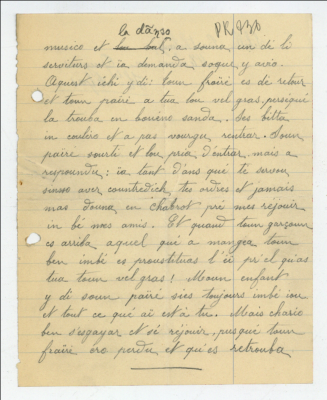 la dänso PR 230
musico et lou bal, a souna un de li
serviturs et ia demanda, soque y avio.
Aquest ichi y di: toun fraïre es de retour
et toun païre a tua lou vel gras, perséqué
la trouba en bouène sanda. Ses bitta
in coulère et a pas vourgu rentrar. Soun
païre sourti et lou pria d'entrar, mais a
respoundu: ia tant d'ans que te servou
sinso aver countredich tes ordres et jamais
m'as douna en chabrot pré mes rejouir
in bé mes amis. Et quand toun garçoun
es arriba aquel qué a mangea toun
ben imbé es proustituas l'ii pr'el qu'as
tua toun vel gras! Moun enfant
y di soun païre sies toujours imbé iou
et tout ce qué aï est à tu. Mais chario
ben s'esgayar et sé réjouir, pusqué toun
fraïre éro perdu et qu'es retrouba